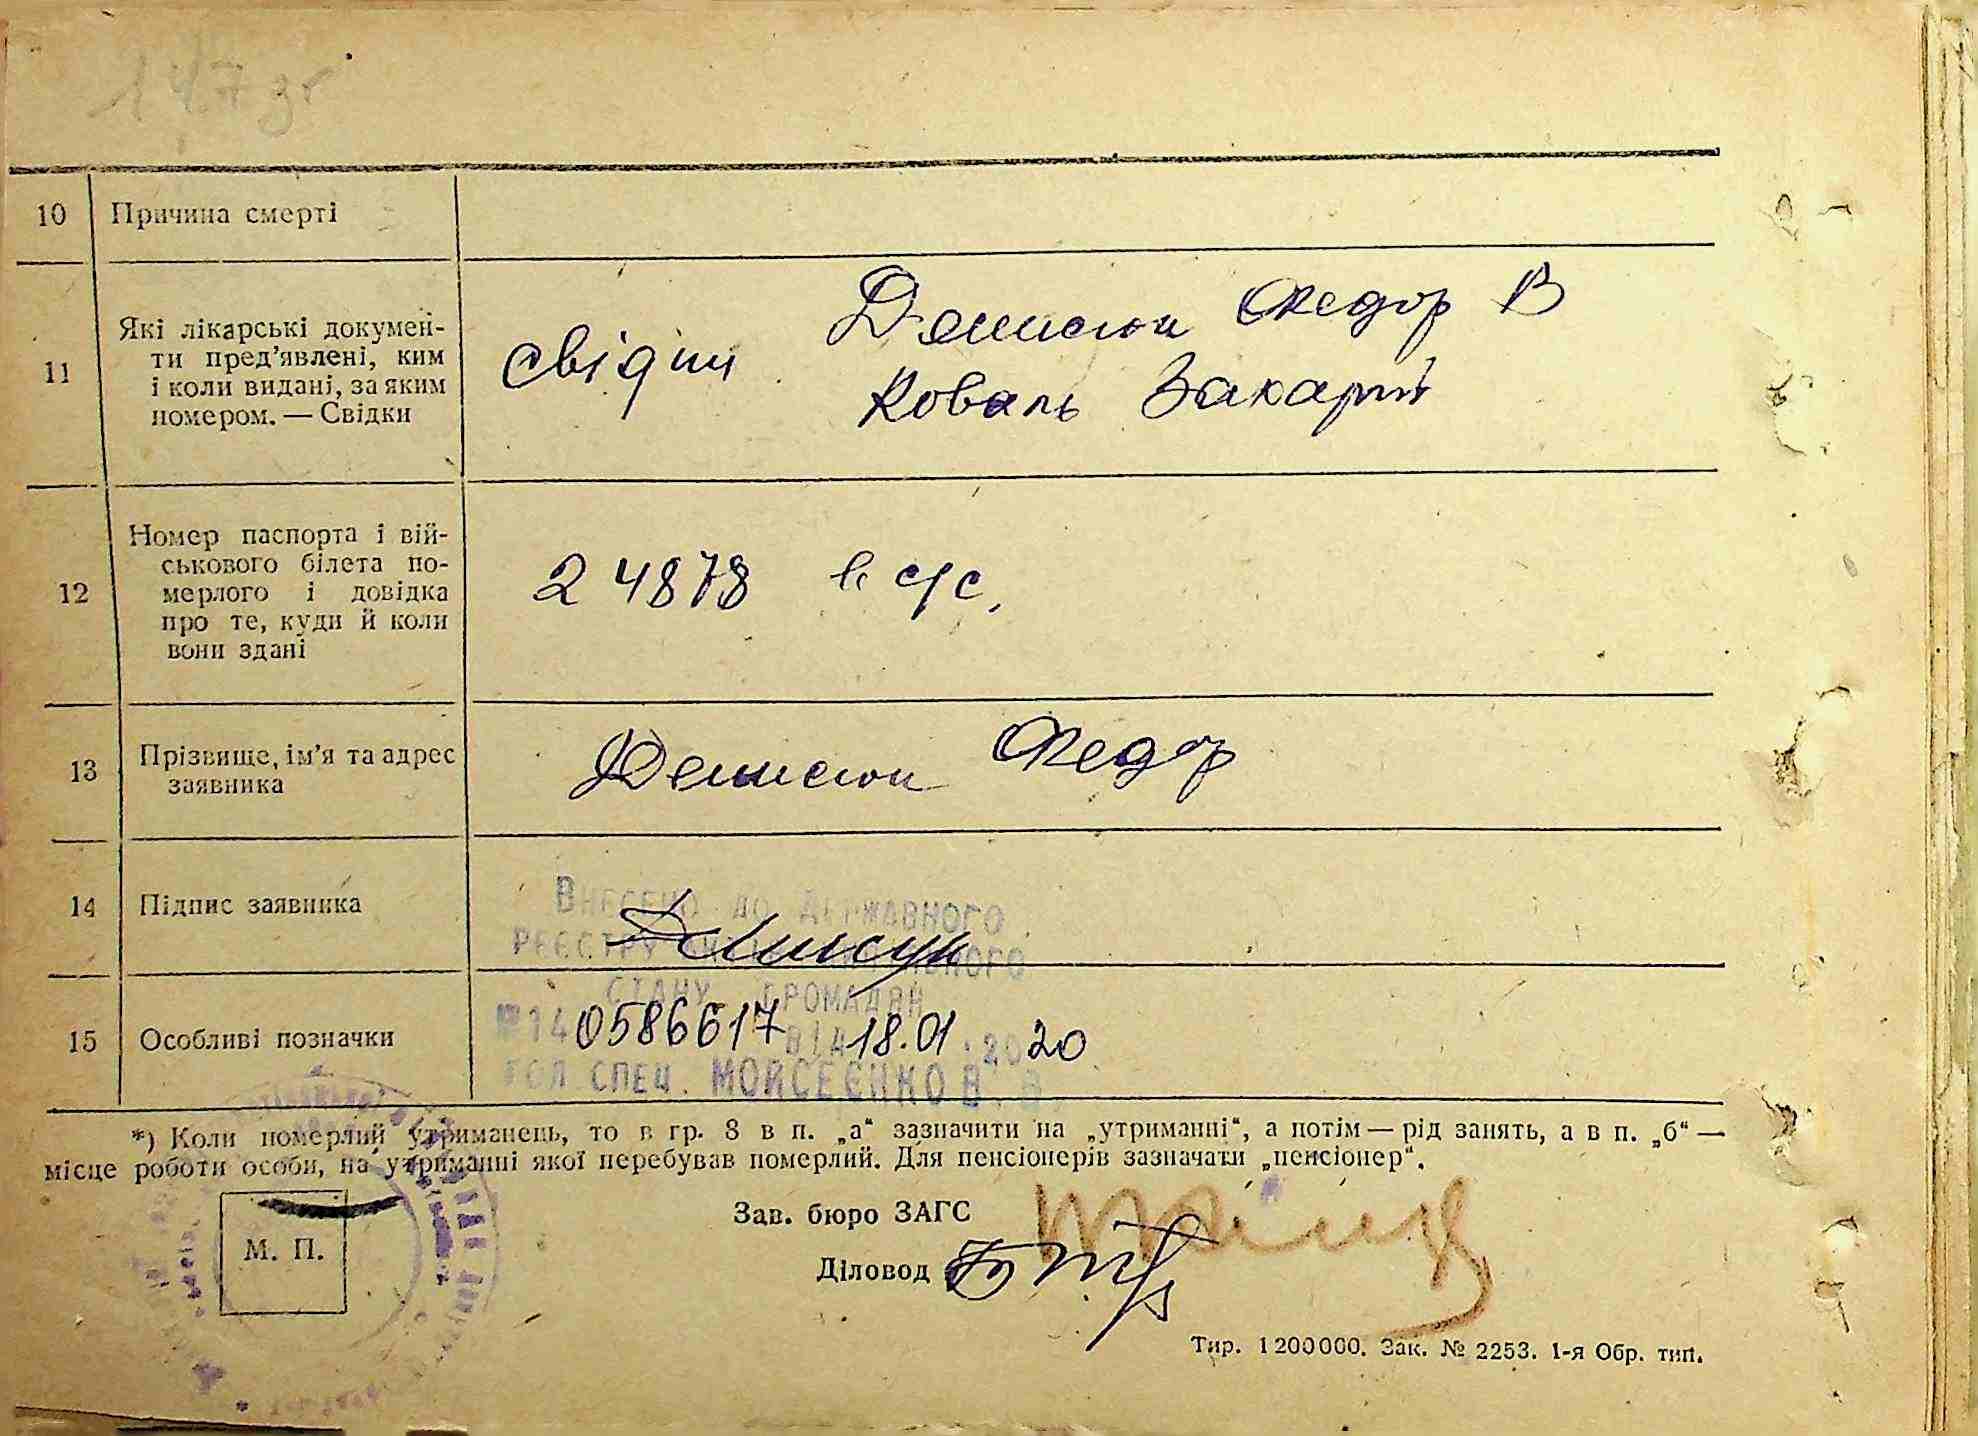 147 gr
10 Причина смерті
11 Які лікарські докумен-
ти пред’явлені, ким
і коли видані, за яким
номером. — Свідки
свідки Денисюк Федор В
Коваль Захарій
12 Номер паспорта і вій-
ськового білета по-
мерлого і довідка
про те, куди й коли
вони здані
24878 в с/с.
13 Прізвище, ім’я та адрес
заявника
Денисюк Федор
14 Підпис заявника
Внесено до Державного
реєстру
Денисук
стану громадян
15 Особливі позначки
№ 140586617 від 18.01.2020
гол. спец. Мойсеєнко В. В.
*) Коли померлий утриманець, то в гр. 8 в п. „а“ зазначити на „утриманні“, а потім — рід занять, а в п. „б“ —
місце роботи особи, на утриманні якої перебував померлий. Для пенсіонерів зазначати „пенсіонер“.
Зав. бюро ЗАГС
М. П.
Діловод
Тир. 1200000. Зак. № 2253. 1-я Обр. тип.